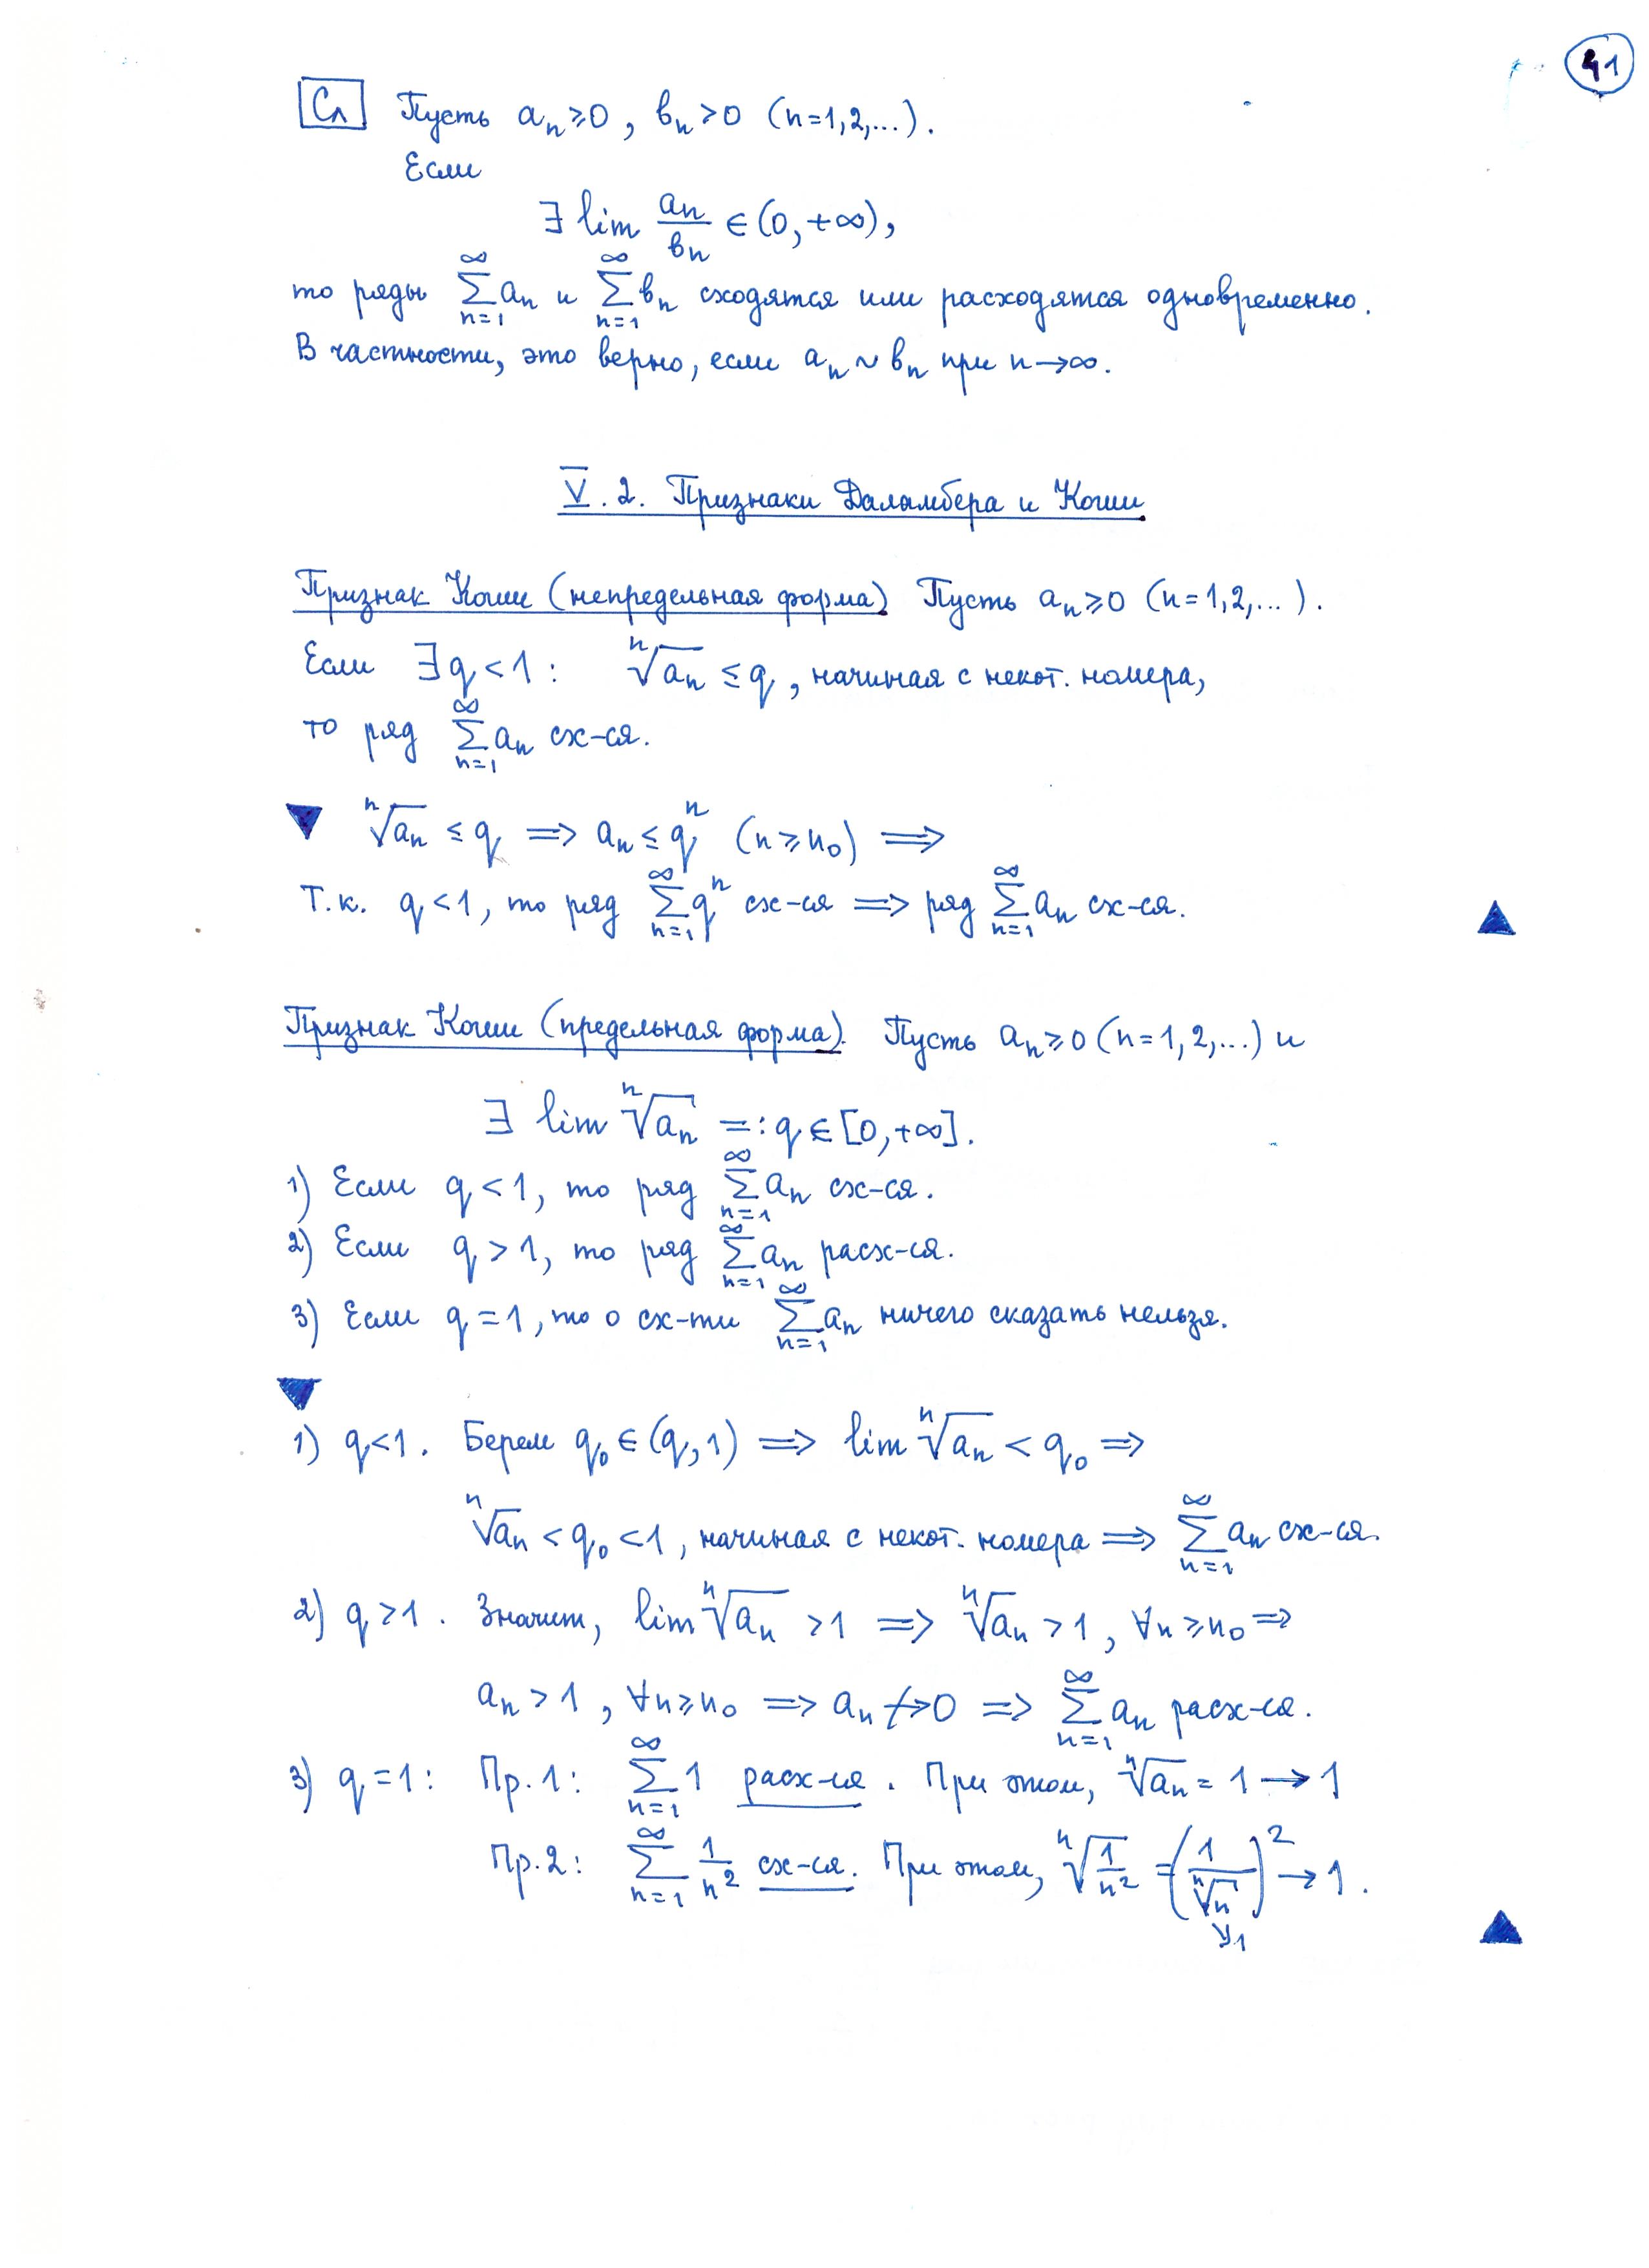 41
Сл Пусть aₙ ≥ 0, bₙ > 0 (n=1,2,...).
Если
∃ lim aₙ/bₙ ∈ (0,+∞),
то ряды ∑_{n=1}^{∞} aₙ и ∑_{n=1}^{∞} bₙ сходятся или расходятся одновременно.
В частности, это верно, если aₙ ~ bₙ при n→∞.
V.2. Признаки Даламбера и Коши
Признак Коши (непредельная форма) Пусть aₙ ≥ 0 (n=1,2,...).
Если ∃ q < 1 : ⁿ√aₙ ≤ q, начиная с некот. номера,
то ряд ∑_{n=1}^{∞} aₙ сх-ся.
▼ ⁿ√aₙ ≤ q ⟹ aₙ ≤ qⁿ (n ≥ n₀) ⟹
Т.к. q < 1, то ряд ∑_{n=1}^{∞} qⁿ сх-ся ⟹ ряд ∑_{n=1}^{∞} aₙ сх-ся. ▲
Признак Коши (предельная форма). Пусть aₙ ≥ 0 (n=1,2,...) и
∃ lim ⁿ√aₙ =: q ∈ [0,+∞].
1) Если q < 1, то ряд ∑_{n=1}^{∞} aₙ сх-ся.
2) Если q > 1, то ряд ∑_{n=1}^{∞} aₙ расх-ся.
3) Если q = 1, то о сх-ти ∑_{n=1}^{∞} aₙ ничего сказать нельзя.
▼
1) q < 1. Берем q₀ ∈ (q,1) ⟹ lim ⁿ√aₙ < q₀ ⟹
ⁿ√aₙ < q₀ < 1, начиная с некот. номера ⟹ ∑_{n=1}^{∞} aₙ сх-ся.
2) q > 1. Значит, lim ⁿ√aₙ > 1 ⟹ ⁿ√aₙ > 1, ∀n ≥ n₀ ⟹
aₙ > 1, ∀n ≥ n₀ ⟹ aₙ ↛ 0 ⟹ ∑_{n=1}^{∞} aₙ расх-ся.
3) q = 1: Пр.1: ∑_{n=1}^{∞} 1 расх-ся. При этом, ⁿ√aₙ = 1 → 1
Пр.2: ∑_{n=1}^{∞} 1/n² сх-ся. При этом, ⁿ√(1/n²) = (1/ⁿ√n)² → 1.
↘1 ▲